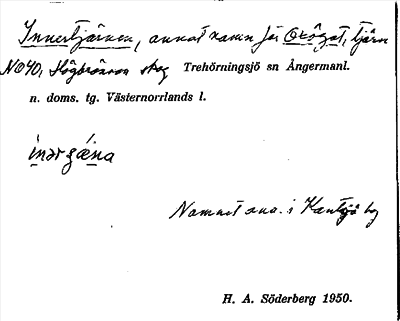 Innertjärnen, annat namn för Oxögat, tjärn
NO40, Högbrännan skog Trehörningsjö sn Ångermanl.
n. doms. tg. Västernorrlands l.
Namnet anv. i by
H. A. Söderberg 1950.